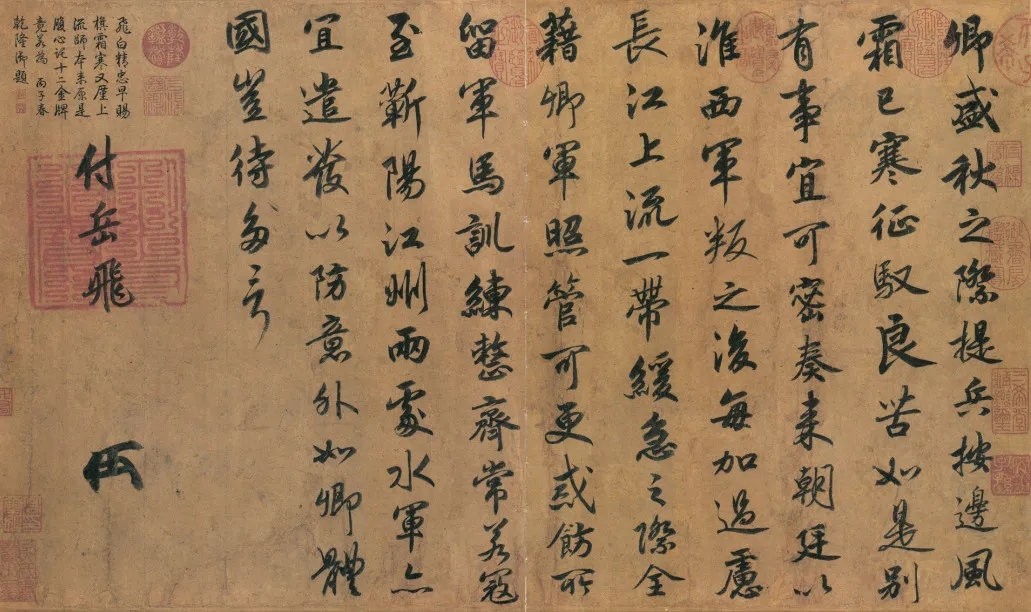 卿盛秋之際提兵按邊風
霜已寒征馭良苦如是別
有事宜可密奏來朝廷以
淮西軍叛之後每加過慮
長江上流一帶緩急之際全
藉卿軍照管可更戒飭所
留軍馬訓練整齊常若寇
至蘄陽江州兩處水軍亦
宜遣發以防意外如卿體
國豈待多言
付岳飛
飛白精忠早賜
旗霜寒又屢上
流師本來原是
腹心託十二金牌
竟若為 丙子春
乾隆御題